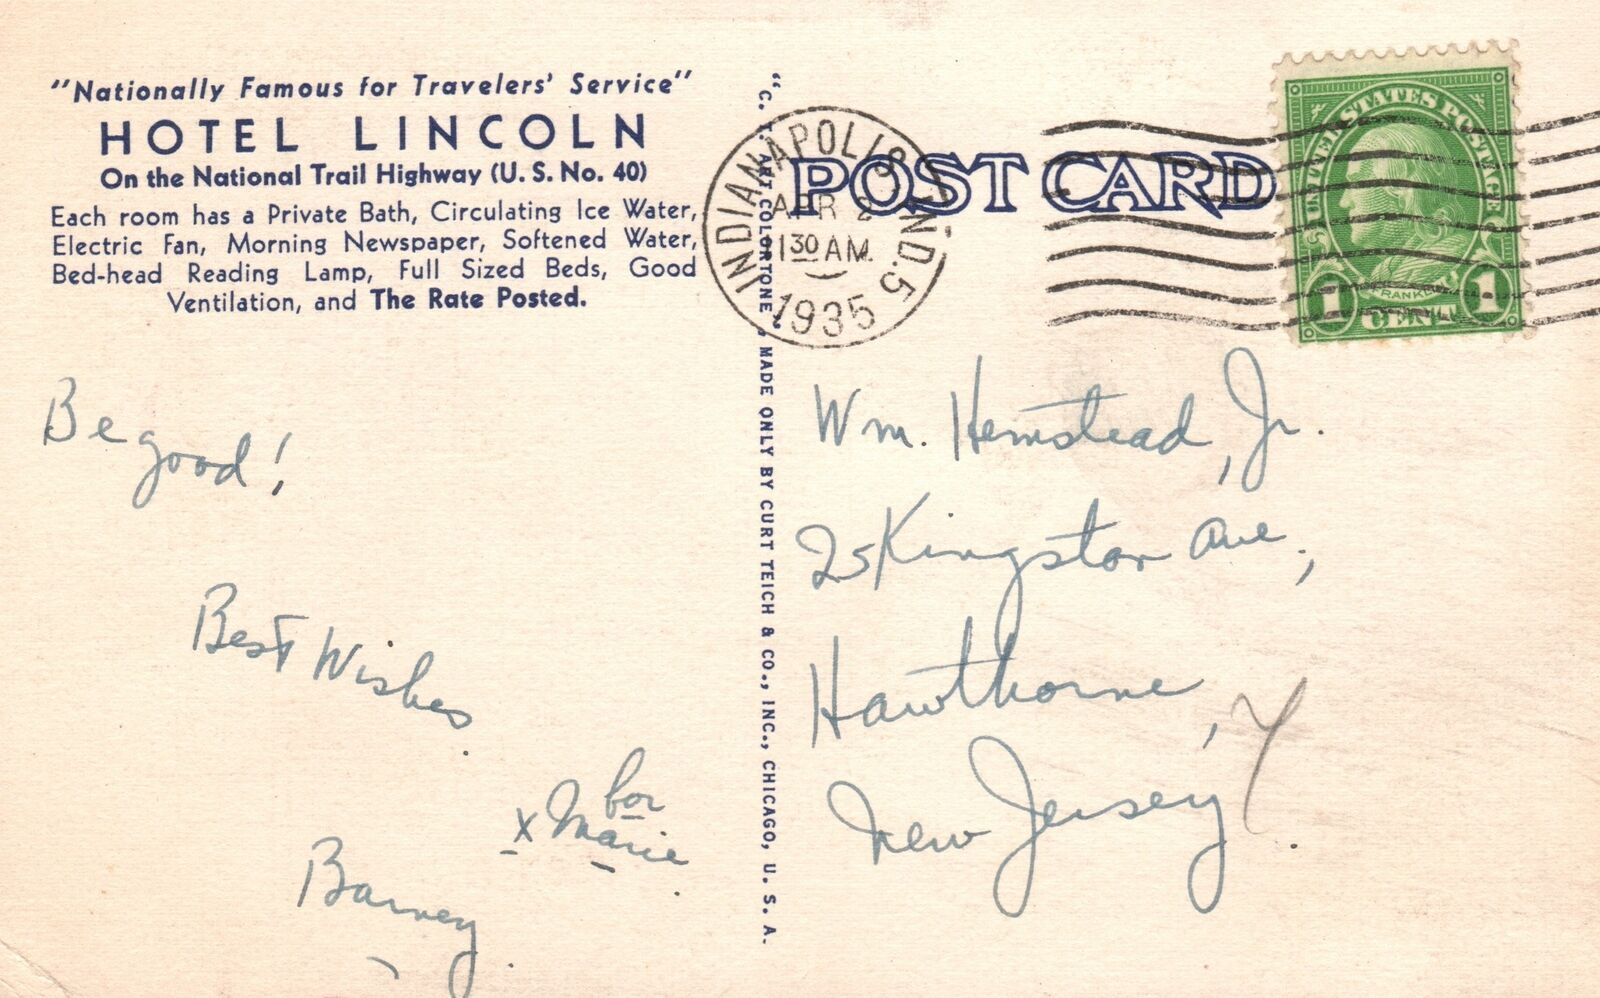 "Nationally Famous for Travelers' Service"
HOTEL LINCOLN
On the National Trail Highway (U. S. No. 40)
Each room has a Private Bath, Circulating Ice Water,
Electric Fan, Morning Newspaper, Softened Water,
Bed-head Reading Lamp, Full Sized Beds, Good
Ventilation, and The Rate Posted.
Be good!
Best Wishes.
x for Marie.
Barney.
"C. T. ART-COLORTONE" MADE ONLY BY CURT TEICH & CO., INC., CHICAGO, U. S. A.
POST CARD
INDIANAPOLIS, IND. 5
APR 2
1 30 AM.
1935
UNITED STATES POSTAGE
FRANKLIN
1 CENT 1
Wm. Hemstead, Jr.
25 Kingston Ave,
Hawthorne,
New Jersey.